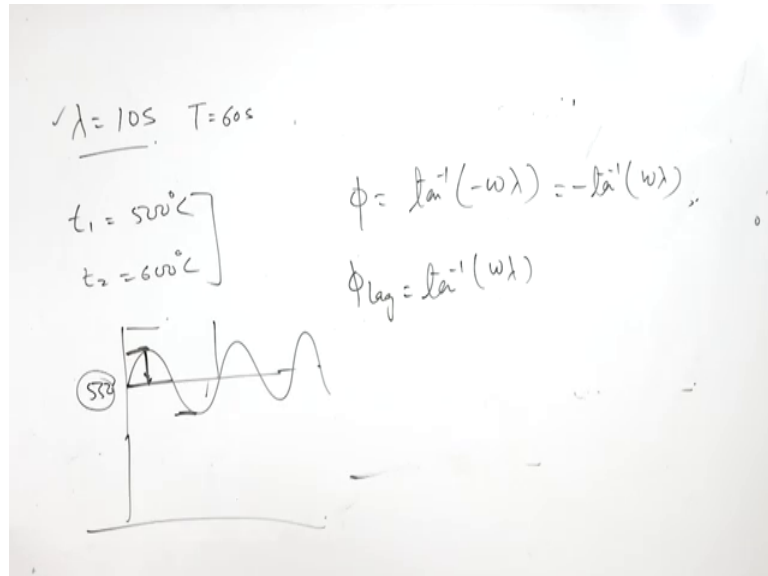 ✓λ = 10s T = 60s
t₁ = 500°C
t₂ = 600°C
550
ϕ = tan⁻¹(-ωλ) = -tan⁻¹(ωλ)
ϕlag = tan⁻¹(ωλ)